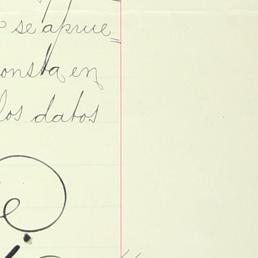 se aprue=
onsta en
los datos